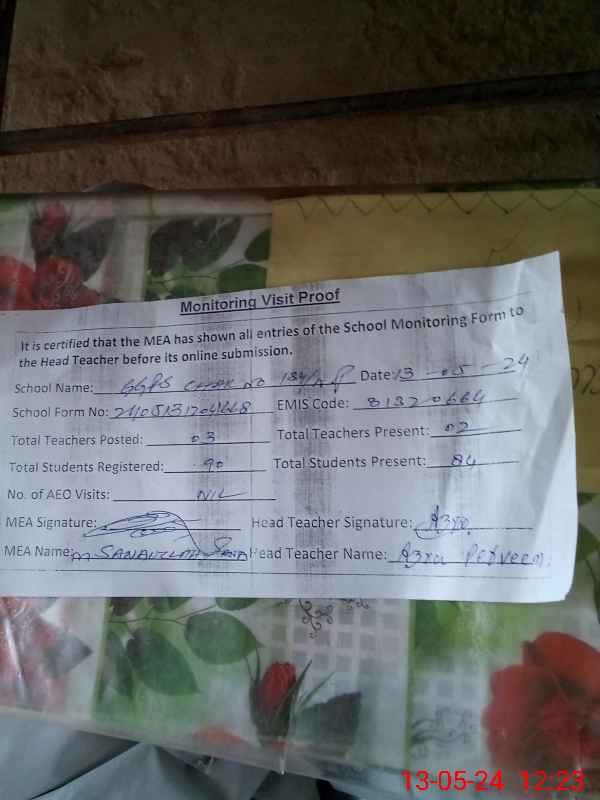 Monitoring Visit Proof
It is certified that the MEA has shown all entries of the School Monitoring Form to
the Head Teacher before its online submission.
School Name: GGPS CHAK NO 134/A P Date: 13-05-24
School Form No: EMIS Code: 81320664
Total Teachers Posted: 03 Total Teachers Present: 02
Total Students Registered: 90 Total Students Present: 84
No. of AEO Visits: NIL
MEA Signature: Head Teacher Signature: Azra
MEA Name: M SANAULLAH Head Teacher Name: Azra Perveen.
13-05-24 12:23